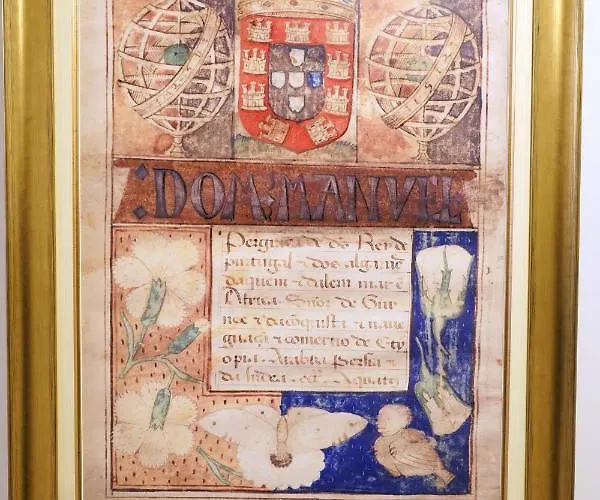 DOM·MANVEL
Per graça de ds Rey de
purtugal & dos algarue
daquem & dalem mar ē
Africa Sñor de Guy
nee & da cōquista & naue
guaçā & comerçio de Ety
opia· Arabia Persia &
da Jndia· ec. A quātos